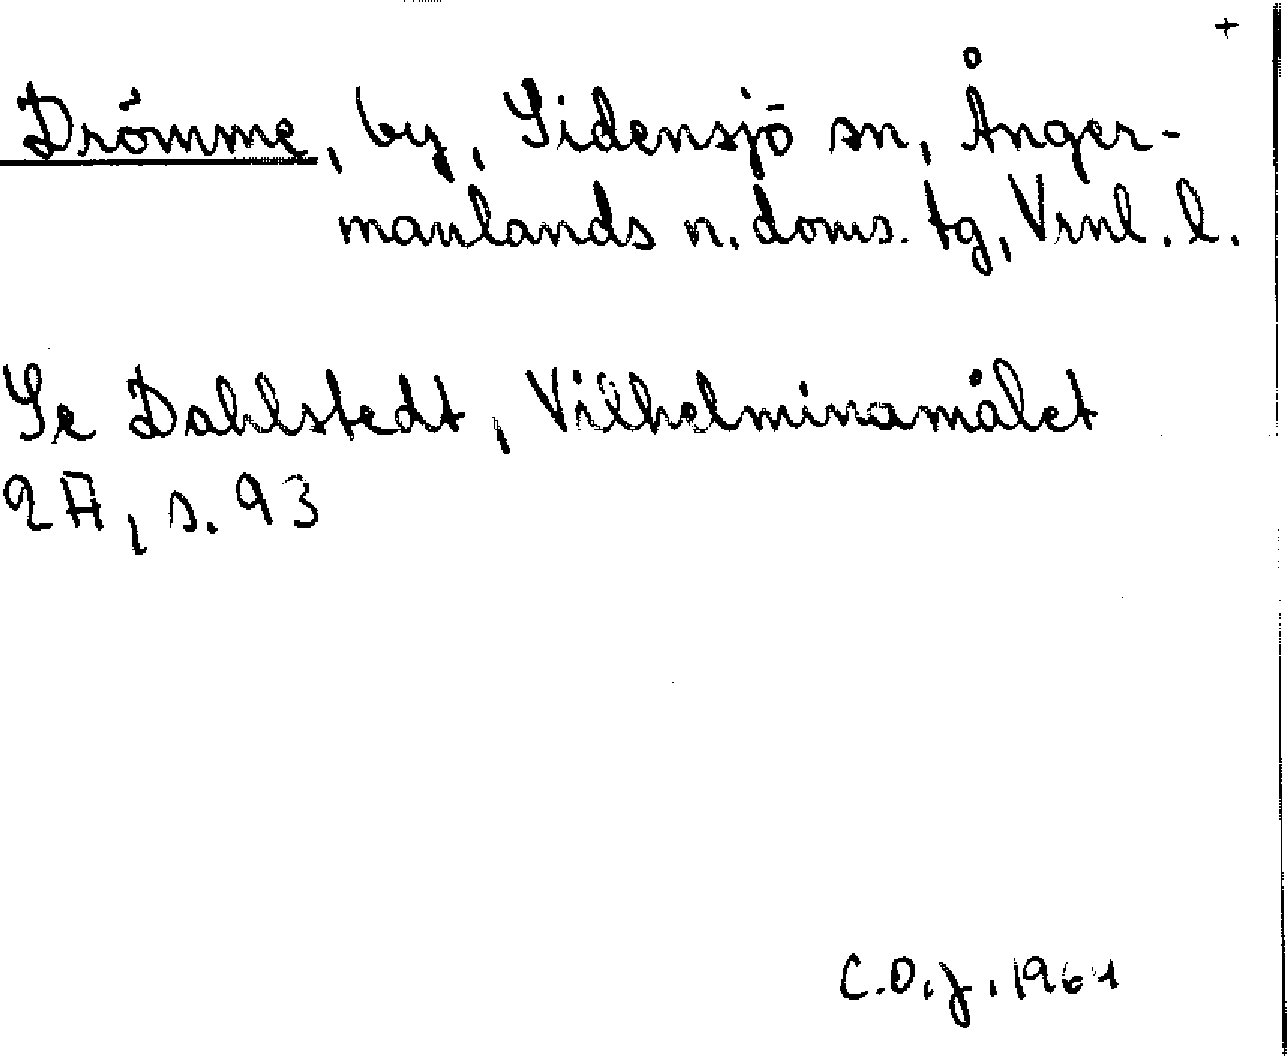 +
Drömme, by, Sidensjö sn, Ånger-
manlands n. doms. tg, Vrnl. l.
Se Dahlstedt, Vilhelminamålet
2A, s. 93
C.O.j. 1961